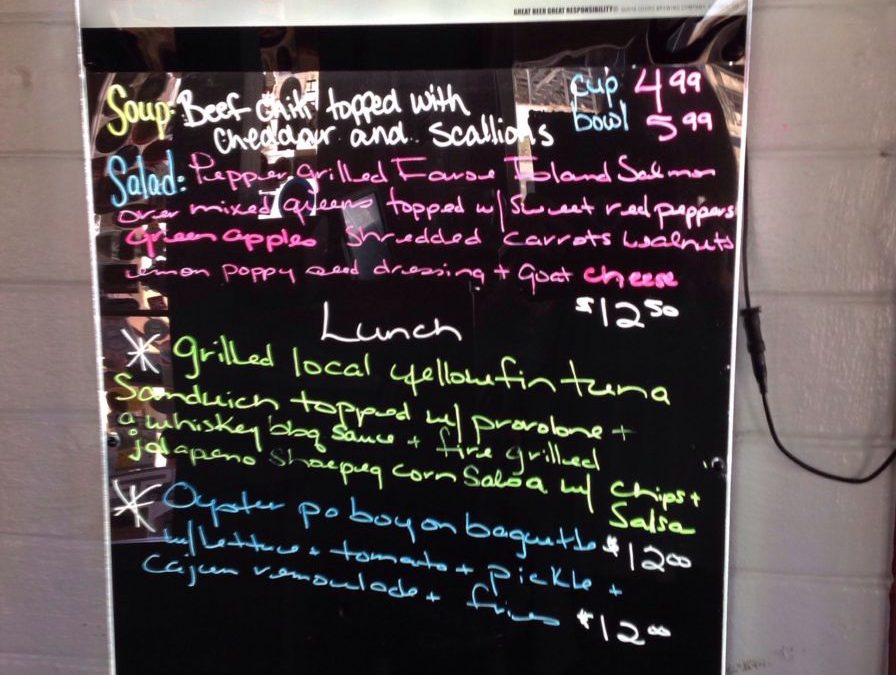 GREAT BEER GREAT RESPONSIBILITY®
Soup: Beef Chili topped with cup 4 99
Cheddar and Scallions bowl 5 99
Salad: Pepper grilled Faroe Island Salmon
over mixed greens topped w/ Sweet red peppers
Green apples Shredded Carrots walnuts
lemon poppy seed dressing + goat cheese
$12 50
Lunch
* grilled local yellowfin tuna
Sandwich topped w/ provolone +
a whiskey bbq sauce + fire grilled
jalapeno Shoepeg corn Salsa w/ chips +
Salsa
$12 00
* Oyster po boy on baguette
w/ lettuce + tomato + pickle +
Cajun remoulade + fries $12 00